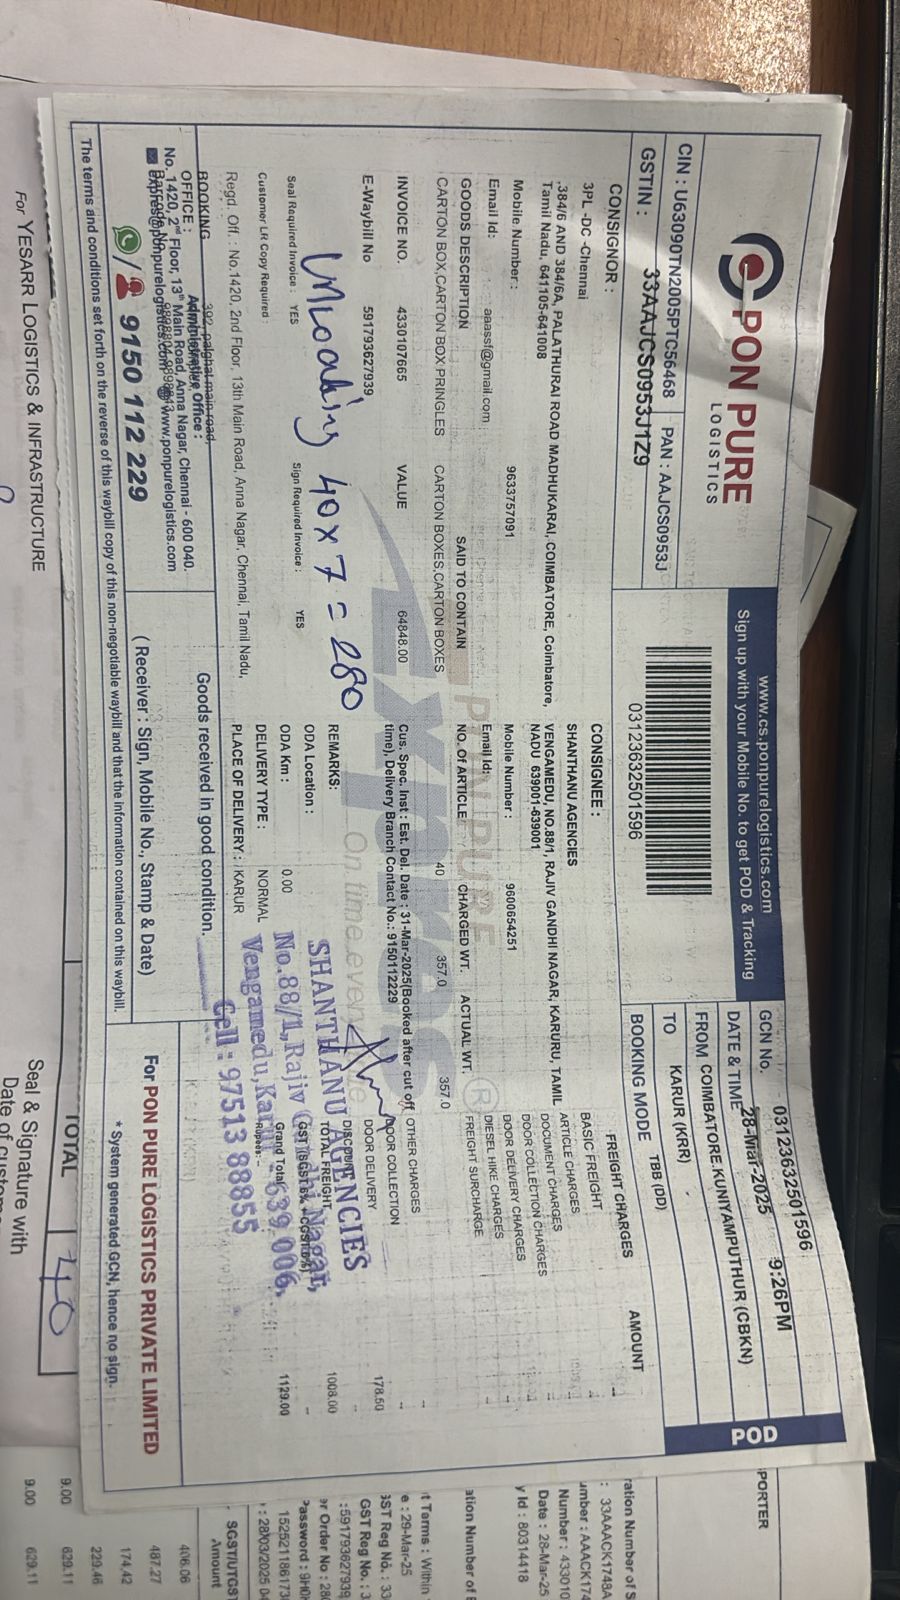 PON PURE
LOGISTICS
CIN : U63090TN2005PTC56468 PAN : AAJCS0953J
GSTIN : 33AAJCS0953J1Z9
www.cs.ponpurelogistics.com
Sign up with your Mobile No. to get POD & Tracking
03123632501596
GCN No. 03123632501596
DATE & TIME 28-Mar-2025 9:26PM
FROM COIMBATORE.KUNIYAMPUTHUR (CBKN)
TO KARUR (KRR)
BOOKING MODE TBB (DD)
POD
CONSIGNOR :
3PL -DC -Chennai
,384/6 AND 384/6A, PALATHURAI ROAD MADHUKARAI, COIMBATORE, Coimbatore,
Tamil Nadu, 641105-641008
Mobile Number : 9633757091
Email Id: aaassf@gmail.com
CONSIGNEE :
SHANTHANU AGENCIES
VENGAMEDU, NO.88/1, RAJIV GANDHI NAGAR, KARURU, TAMIL
NADU 639001-639001
Mobile Number : 9600654251
Email Id:
FREIGHT CHARGES AMOUNT
BASIC FREIGHT --
ARTICLE CHARGES --
DOCUMENT CHARGES
DOOR COLLECTION CHARGES
DOOR DELIVERY CHARGES --
DIESEL HIKE CHARGES --
FREIGHT SURCHARGE
OTHER CHARGES --
DOOR COLLECTION --
DOOR DELIVERY 178.50
DISCOUNT --
TOTAL FREIGHT 1008.00
Grand Total 1129.00
Rupees: --
GOODS DESCRIPTION SAID TO CONTAIN NO. Of ARTICLE CHARGED WT. ACTUAL WT.
CARTON BOX,CARTON BOX PRINGLES CARTON BOXES,CARTON BOXES 40 357.0 357.0
INVOICE NO. 4330107665 VALUE 64848.00
E-Waybill No 591793627939
Cus. Spec. Inst : Est. Del. Date : 31-Mar-2025(Booked after cut off
time), Delivery Branch Contact No.: 9150112229
Unloading 40 x 7 = 280
REMARKS:
Seal Required Invoice : YES Sign Required Invoice : YES
Customer LR Copy Required :
ODA Location :
ODA Km : 0.00
DELIVERY TYPE : NORMAL
PLACE OF DELIVERY : KARUR
Regd. Off. : No.1420, 2nd Floor, 13th Main Road, Anna Nagar, Chennai, Tamil Nadu,
PON PURE
Express
On time every time
SHANTHANU AGENCIES
No.88/1, Rajiv Gandhi Nagar,
Vengamedu, Karur - 639 006,
Cell : 97513 88855
BOOKING
OFFICE :
392, palghat main road,
Administrative Office :
No. 1420, 2nd Floor, 13th Main Road, Anna Nagar, Chennai - 600 040.
express@ponpurelogistics.com www.ponpurelogistics.com
9150 112 229
Goods received in good condition.
( Receiver : Sign, Mobile No., Stamp & Date)
For PON PURE LOGISTICS PRIVATE LIMITED
* System generated GCN, hence no sign.
The terms and conditions set forth on the reverse of this waybill copy of this non-negotiable waybill and that the information contained on this waybill.
For YESARR LOGISTICS & INFRASTRUCTURE
TOTAL 40
Seal & Signature with
Date of
: 33AAACK1748A
Number : 433010
Date : 28-Mar-25
y Id : 80314418
ation Number of
t Terms : Within
e : 29-Mar-25
GST Reg No. : 33
GST Reg No. : 3
:591793627939
er Order No : 280
Password : 9H0
1525211861173
: 28/03/2025 04
SGST/UTGST
Amount
406.06
487.27
174.42
229.46
9.00 629.11
9.00 629.11